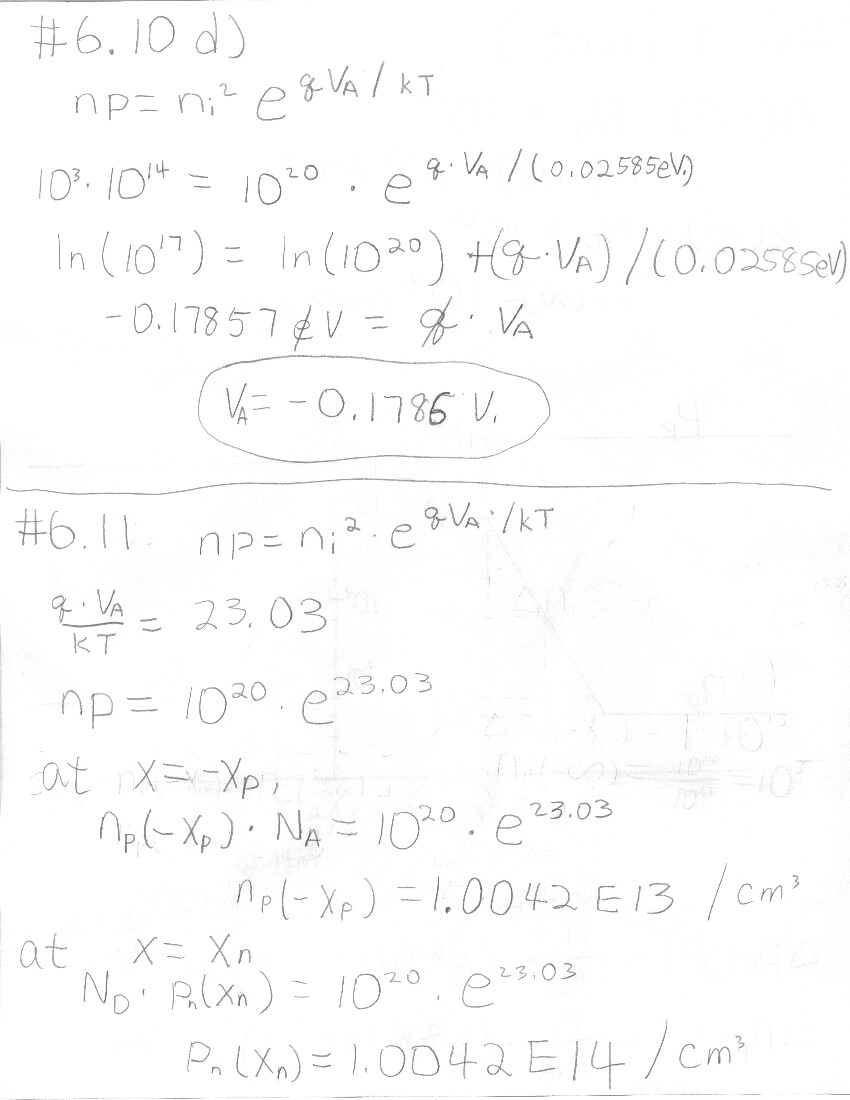 #6.10 d)
np = nᵢ² e^(qV_A / kT)
10³ · 10¹⁴ = 10²⁰ · e^(q · V_A / (0.02585eV.))
ln (10¹⁷) = ln(10²⁰) + (q · V_A) / (0.02585eV)
-0.17857 eV = q · V_A
V_A = -0.1786 V.
#6.11 np = nᵢ² · e^(qV_A · / kT)
q · V_A / kT = 23.03
np = 10²⁰ · e^23.03
at x = -x_p,
n_p(-x_p) · N_A = 10²⁰ · e^23.03
n_p(-x_p) = 1.0042 E13 / cm³
at x = x_n
N_D · p_n(x_n) = 10²⁰ · e^23.03
p_n(x_n) = 1.0042 E14 / cm³